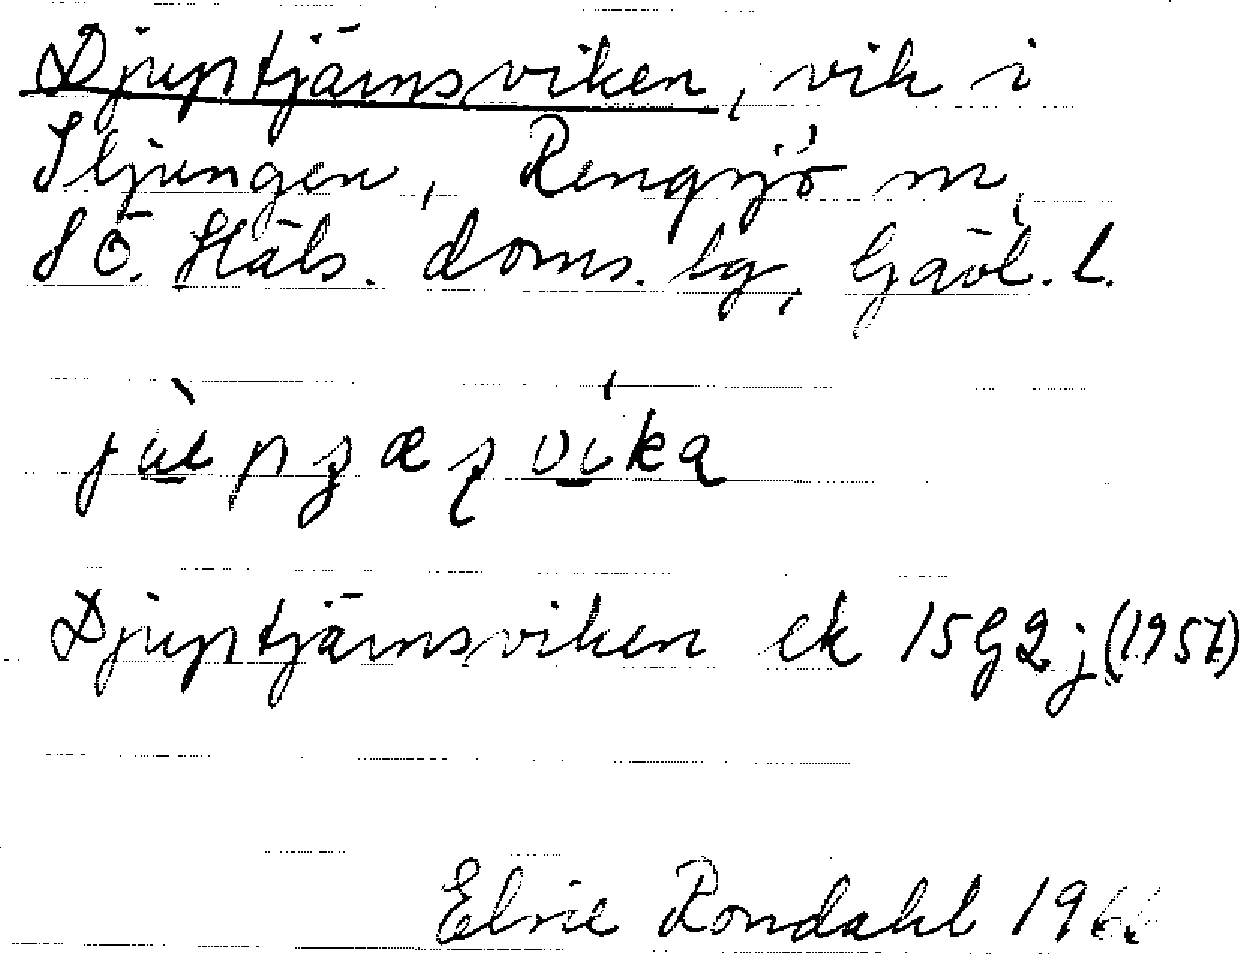 Djuptjärnsviken, vik i
Sljungen, Rengsjö sn,
SÖ. Häls. doms. lg, Gävl. l.
Djuptjärnsviken ek 15G2j (1957)
Elvie Rondahl